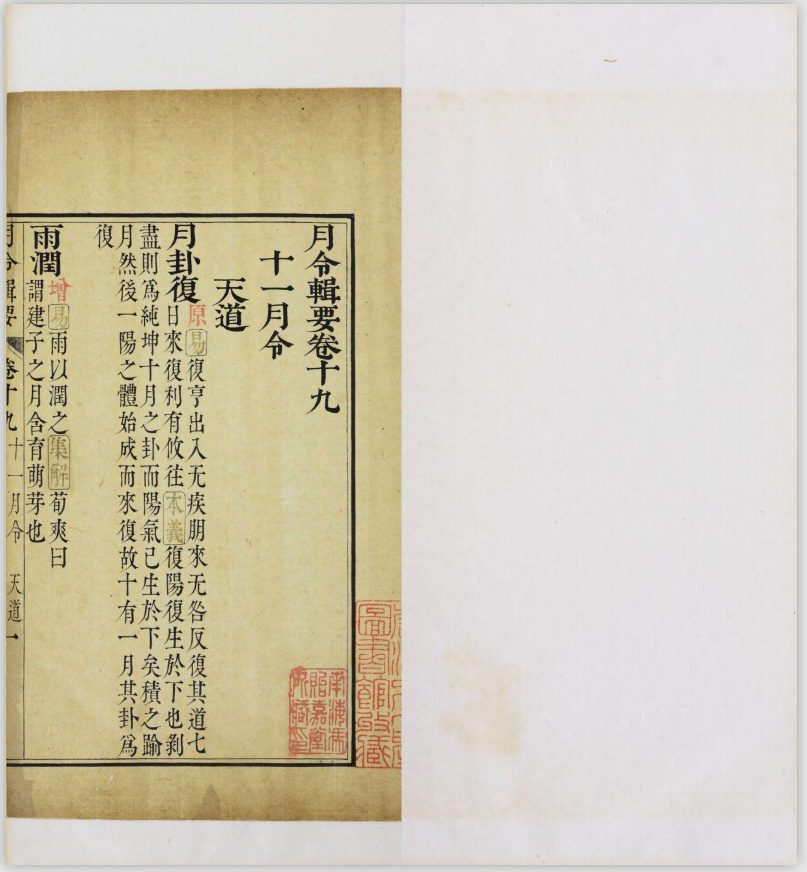 月令輯要卷十九
十一月令
天道
月卦復原易復亨出入无疾朋來无咎反復其道七
日來復利有攸往本義復陽復生於下也剝
盡則爲純坤十月之卦而陽氣已生於下矣積之踰
月然後一陽之體始成而來復故十有一月其卦爲
復
雨潤增易雨以潤之集解荀爽曰
謂建子之月含育萌芽也
月令輯要 卷十九 十一月令 天道 一
圖書館收藏
南海馮
貽嘉堂
所藏